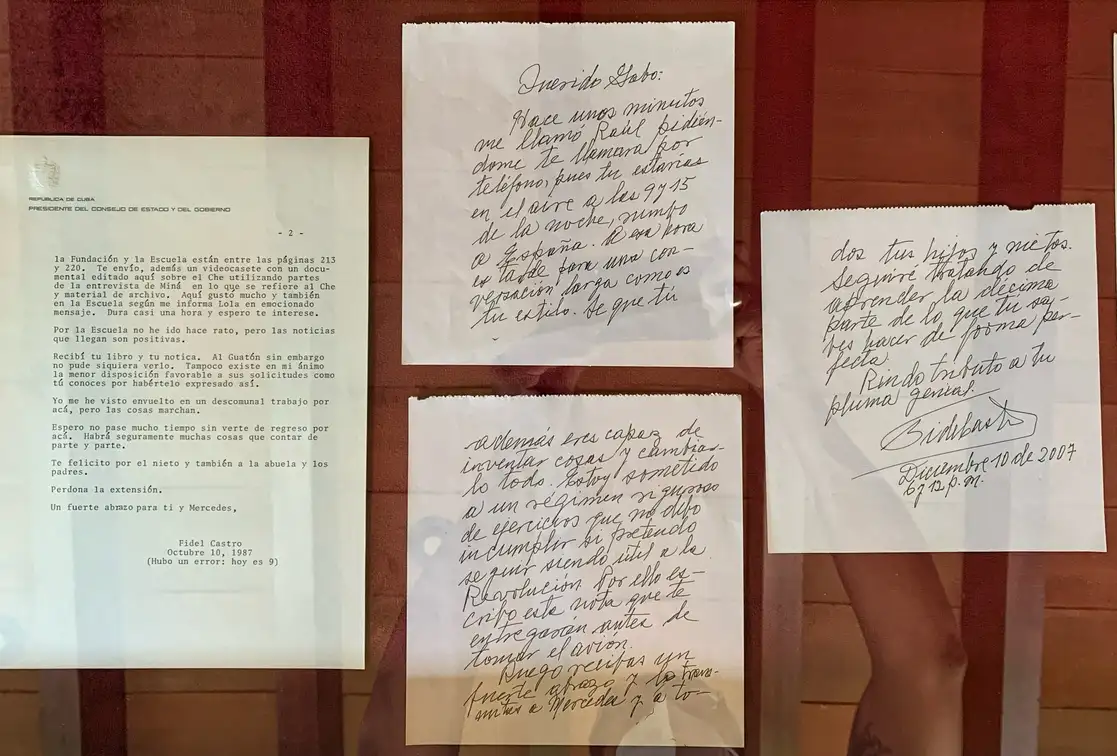 REPÚBLICA DE CUBA
PRESIDENTE DEL CONSEJO DE ESTADO Y DEL GOBIERNO
- 2 -
la Fundación y la Escuela están entre las páginas 213
y 220. Te envío, además un videocasete con un docu-
mental editado aquí sobre el Che utilizando partes
de la entrevista de Miná en lo que se refiere al Che
y material de archivo. Aquí gustó mucho y también
en la Escuela según me informa Lola en emocionado
mensaje. Dura casi una hora y espero te interese.
Por la Escuela no he ido hace rato, pero las noticias
que llegan son positivas.
Recibí tu libro y tu notica. Al Guatón sin embargo
no pude siquiera verlo. Tampoco existe en mi ánimo
la menor disposición favorable a sus solicitudes como
tú conoces por habértelo expresado así.
Yo me he visto envuelto en un descomunal trabajo por
acá, pero las cosas marchan.
Espero no pase mucho tiempo sin verte de regreso por
acá. Habrá seguramente muchas cosas que contar de
parte y parte.
Te felicito por el nieto y también a la abuela y los
padres.
Perdona la extensión.
Un fuerte abrazo para ti y Mercedes,
Fidel Castro
Octubre 10, 1987
(Hubo un error: hoy es 9)
Querido Gabo:
Hace unos minutos
me llamó Raúl pidién-
dome te llamara por
teléfono, pues tu estarías
en el aire a las 9 y 15
de la noche, rumbo
a España. A esa hora
es tarde para una con-
versación larga como es
tu estilo. Se que tú
además eres capaz de
inventar cosas y cambiar-
lo todo. Estoy sometido
a un régimen riguroso
de ejercicios que no debo
incumplir si pretendo
seguir siendo útil a la
Revolución. Por ello es-
cribo esta nota que te
entregarán antes de
tomar el avión.
Ruego recibas un
fuerte abrazo y lo trans-
mitas a Mercedes y a to-
dos tus hijos y nietos.
Seguiré tratando de
aprender la décima
parte de lo que tú sa-
bes hacer de forma per-
fecta.
Rindo tributo a tu
pluma genial.
Fidel Castro
Diciembre 10 de 2007
6 y 12 p.m.